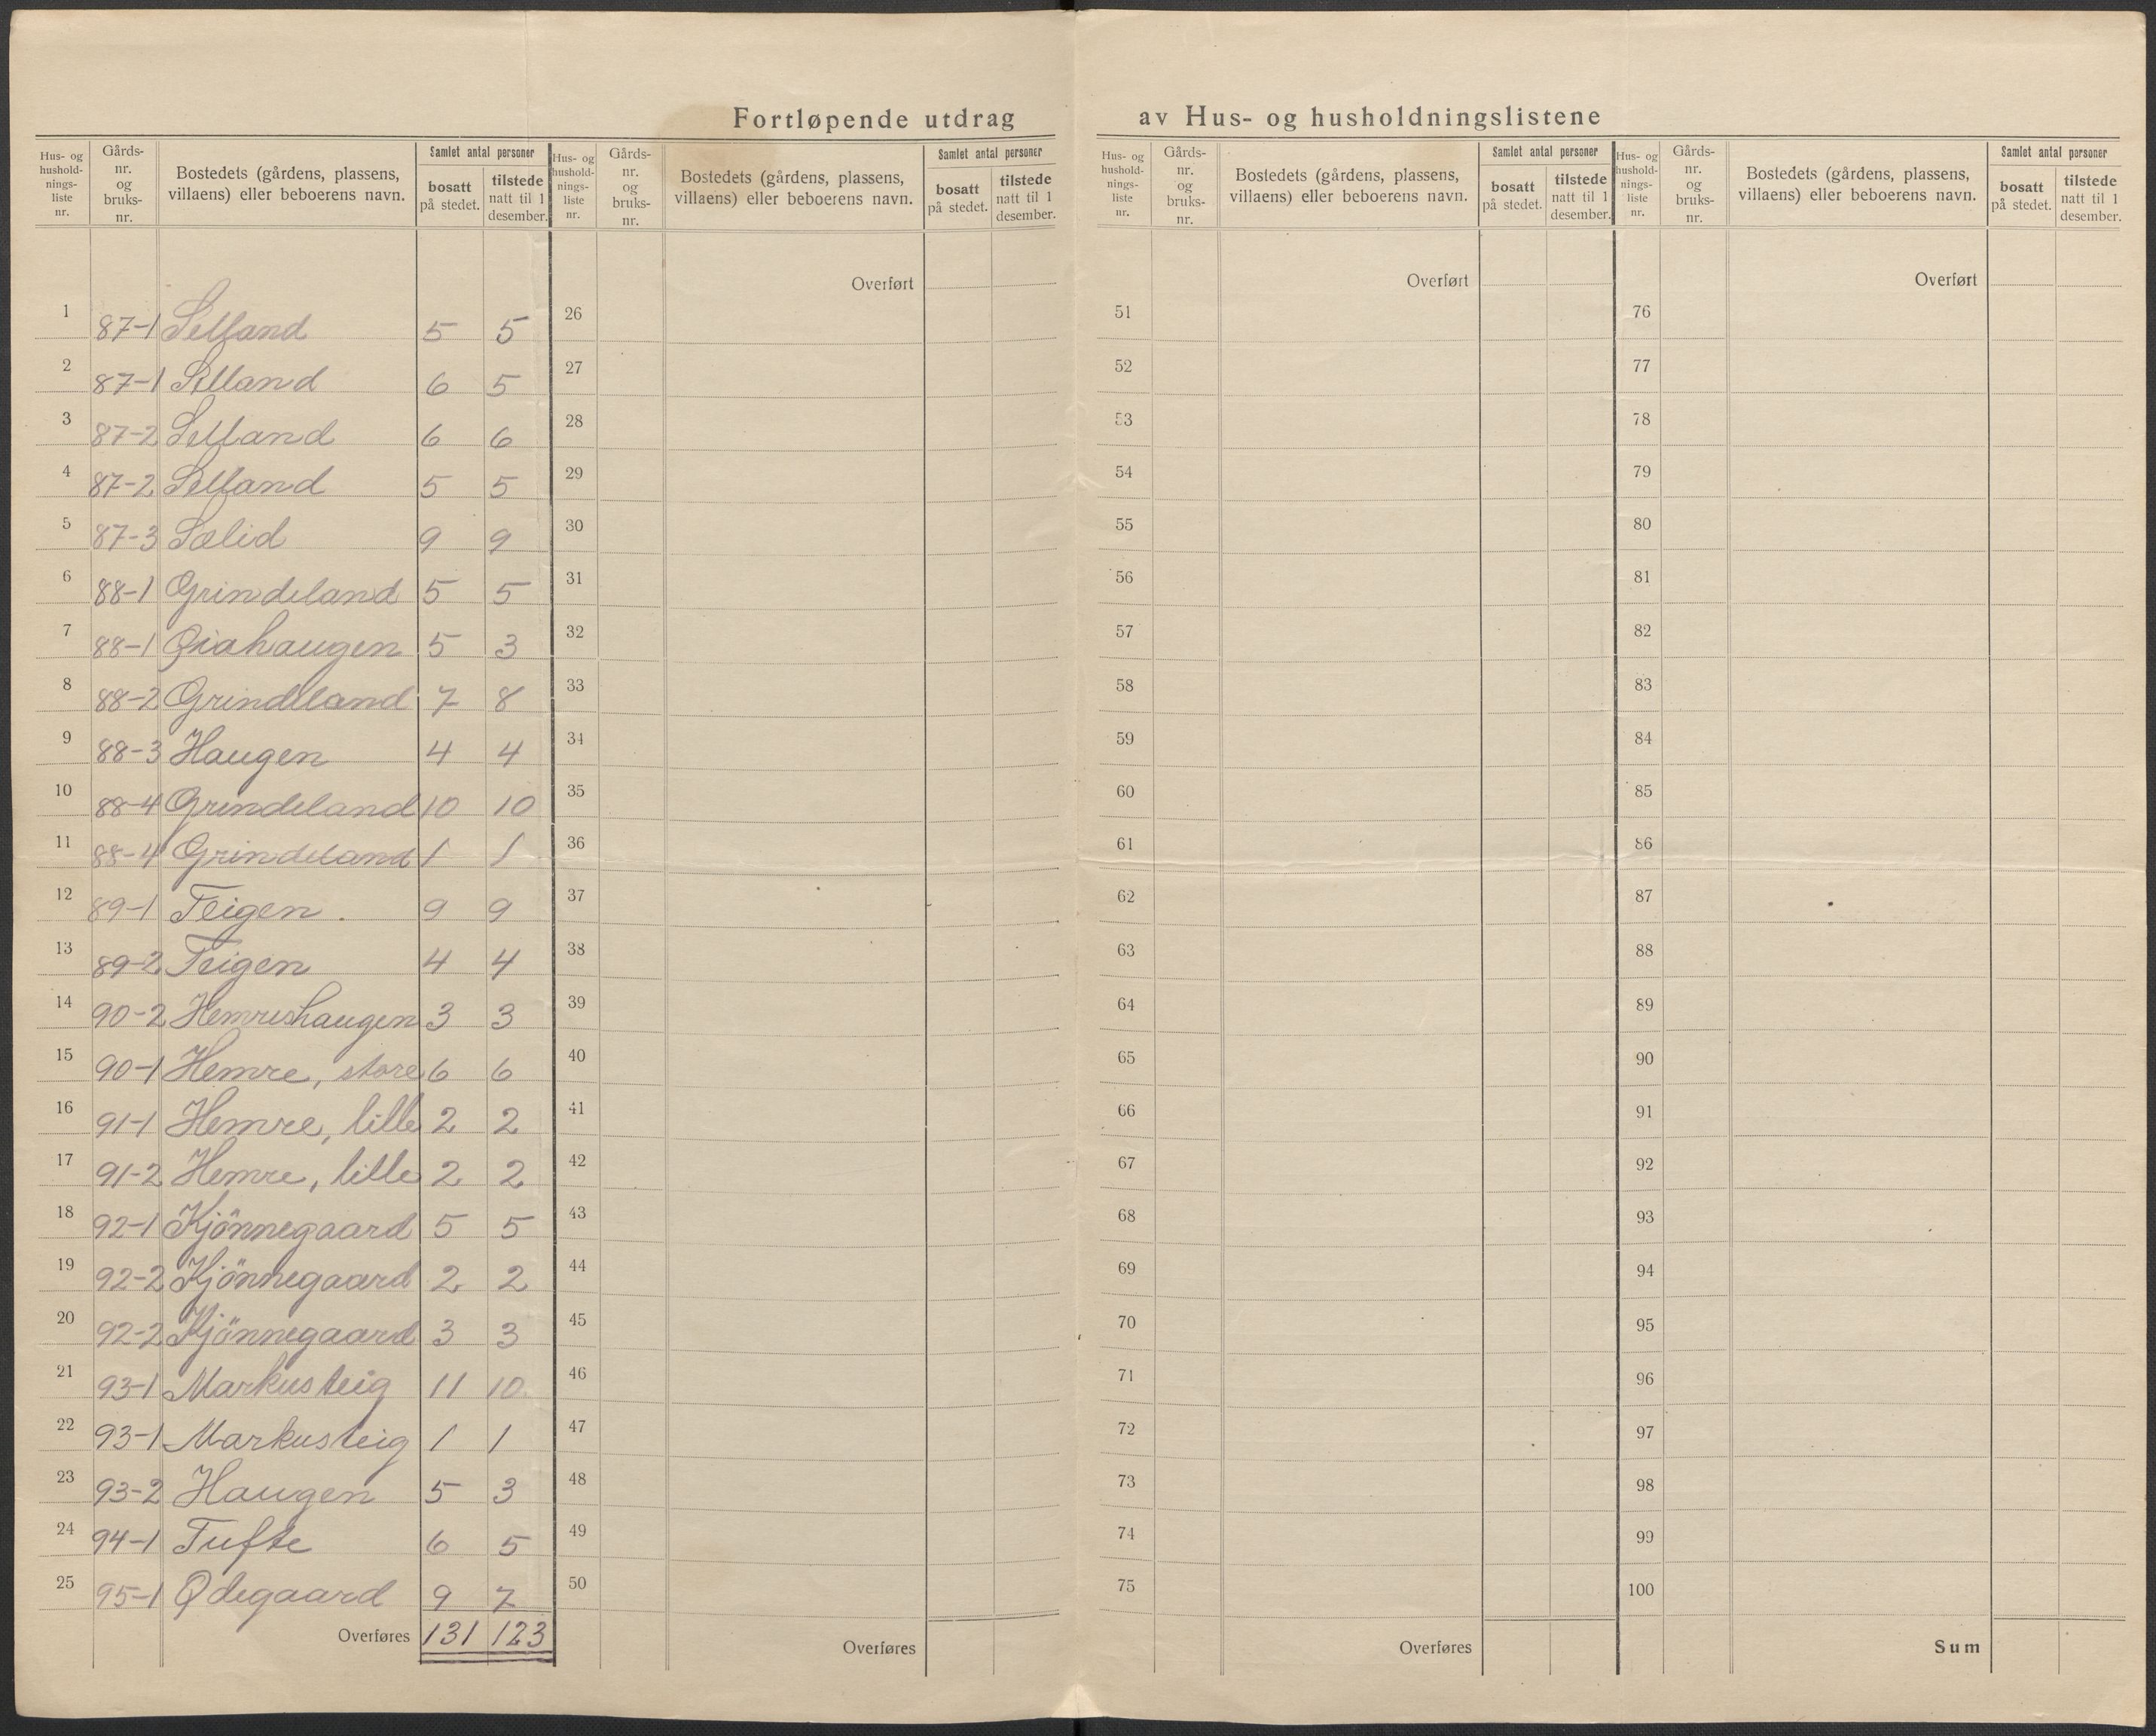 Fortløpende utdrag av Hus- og husholdningslistene
Hus- og hushold- nings- liste nr. Gårds- nr. og bruks- nr. Bostedets (gårdens, plassens, villaens) eller beboerens navn. Samlet antal personer bosatt på stedet. tilstede natt til 1 desember.
1 87-1 Selland 5 5
2 87-1 Selland 6 5
3 87-2 Selland 6 6
4 87-2 Selland 5 5
5 87-3 Sælid 9 9
6 88-1 Grindeland 5 5
7 88-1 5 3
8 88-2 Grindeland 7 8
9 88-3 Haugen 4 4
10 88-4 Grindeland 10 10
11 88-4 Grindeland 1 1
12 89-1 Teigen. 9 9
13 89-2 Teigen 4 4
14 90-2 Hemreshaugen 3 3
15 90-1 Hemre, store 6 6
16 91-1 Hemre, lille 2 2
17 91-2 Hemre, lille 2 2
18 92-1 Kjönnegaard 5 5
19 92-2 Kjönnegaard 2 2
20 92-2 Kjönnegaard 3 3
21 93-1 Markusteig 11 10
22 93-1 Markusteig 1 1
23 93-2 Haugen 5 3
24 94-1 Tufte 6 5
25 95-1 Ødegaard 9 7
Overføres 131 123
Hus- og hushold- nings- liste nr. Gårds- nr. og bruks- nr. Bostedets (gårdens, plassens, villaens) eller beboerens navn. Samlet antal personer bosatt på stedet. tilstede natt til 1 desember.
Overført
26
27
28
29
30
31
32
33
34
35
36
37
38
39
40
41
42
43
44
45
46
47
48
49
50
Overføres
Hus- og hushold- nings- liste nr. Gårds- nr. og bruks- nr. Bostedets (gårdens, plassens, villaens) eller beboerens navn. Samlet antal personer bosatt på stedet. tilstede natt til 1 desember.
Overført
51
52
53
54
55
56
57
58
59
60
61
62
63
64
65
66
67
68
69
70
71
72
73
74
75
Overføres
Hus- og hushold- nings- liste nr. Gårds- nr. og bruks- nr. Bostedets (gårdens, plassens, villaens) eller beboerens navn. Samlet antal personer bosatt på stedet. tilstede natt til 1 desember.
Overført
76
77
78
79
80
81
82
83
84
85
86
87
88
89
90
91
92
93
94
95
96
97
98
99
100
Sum